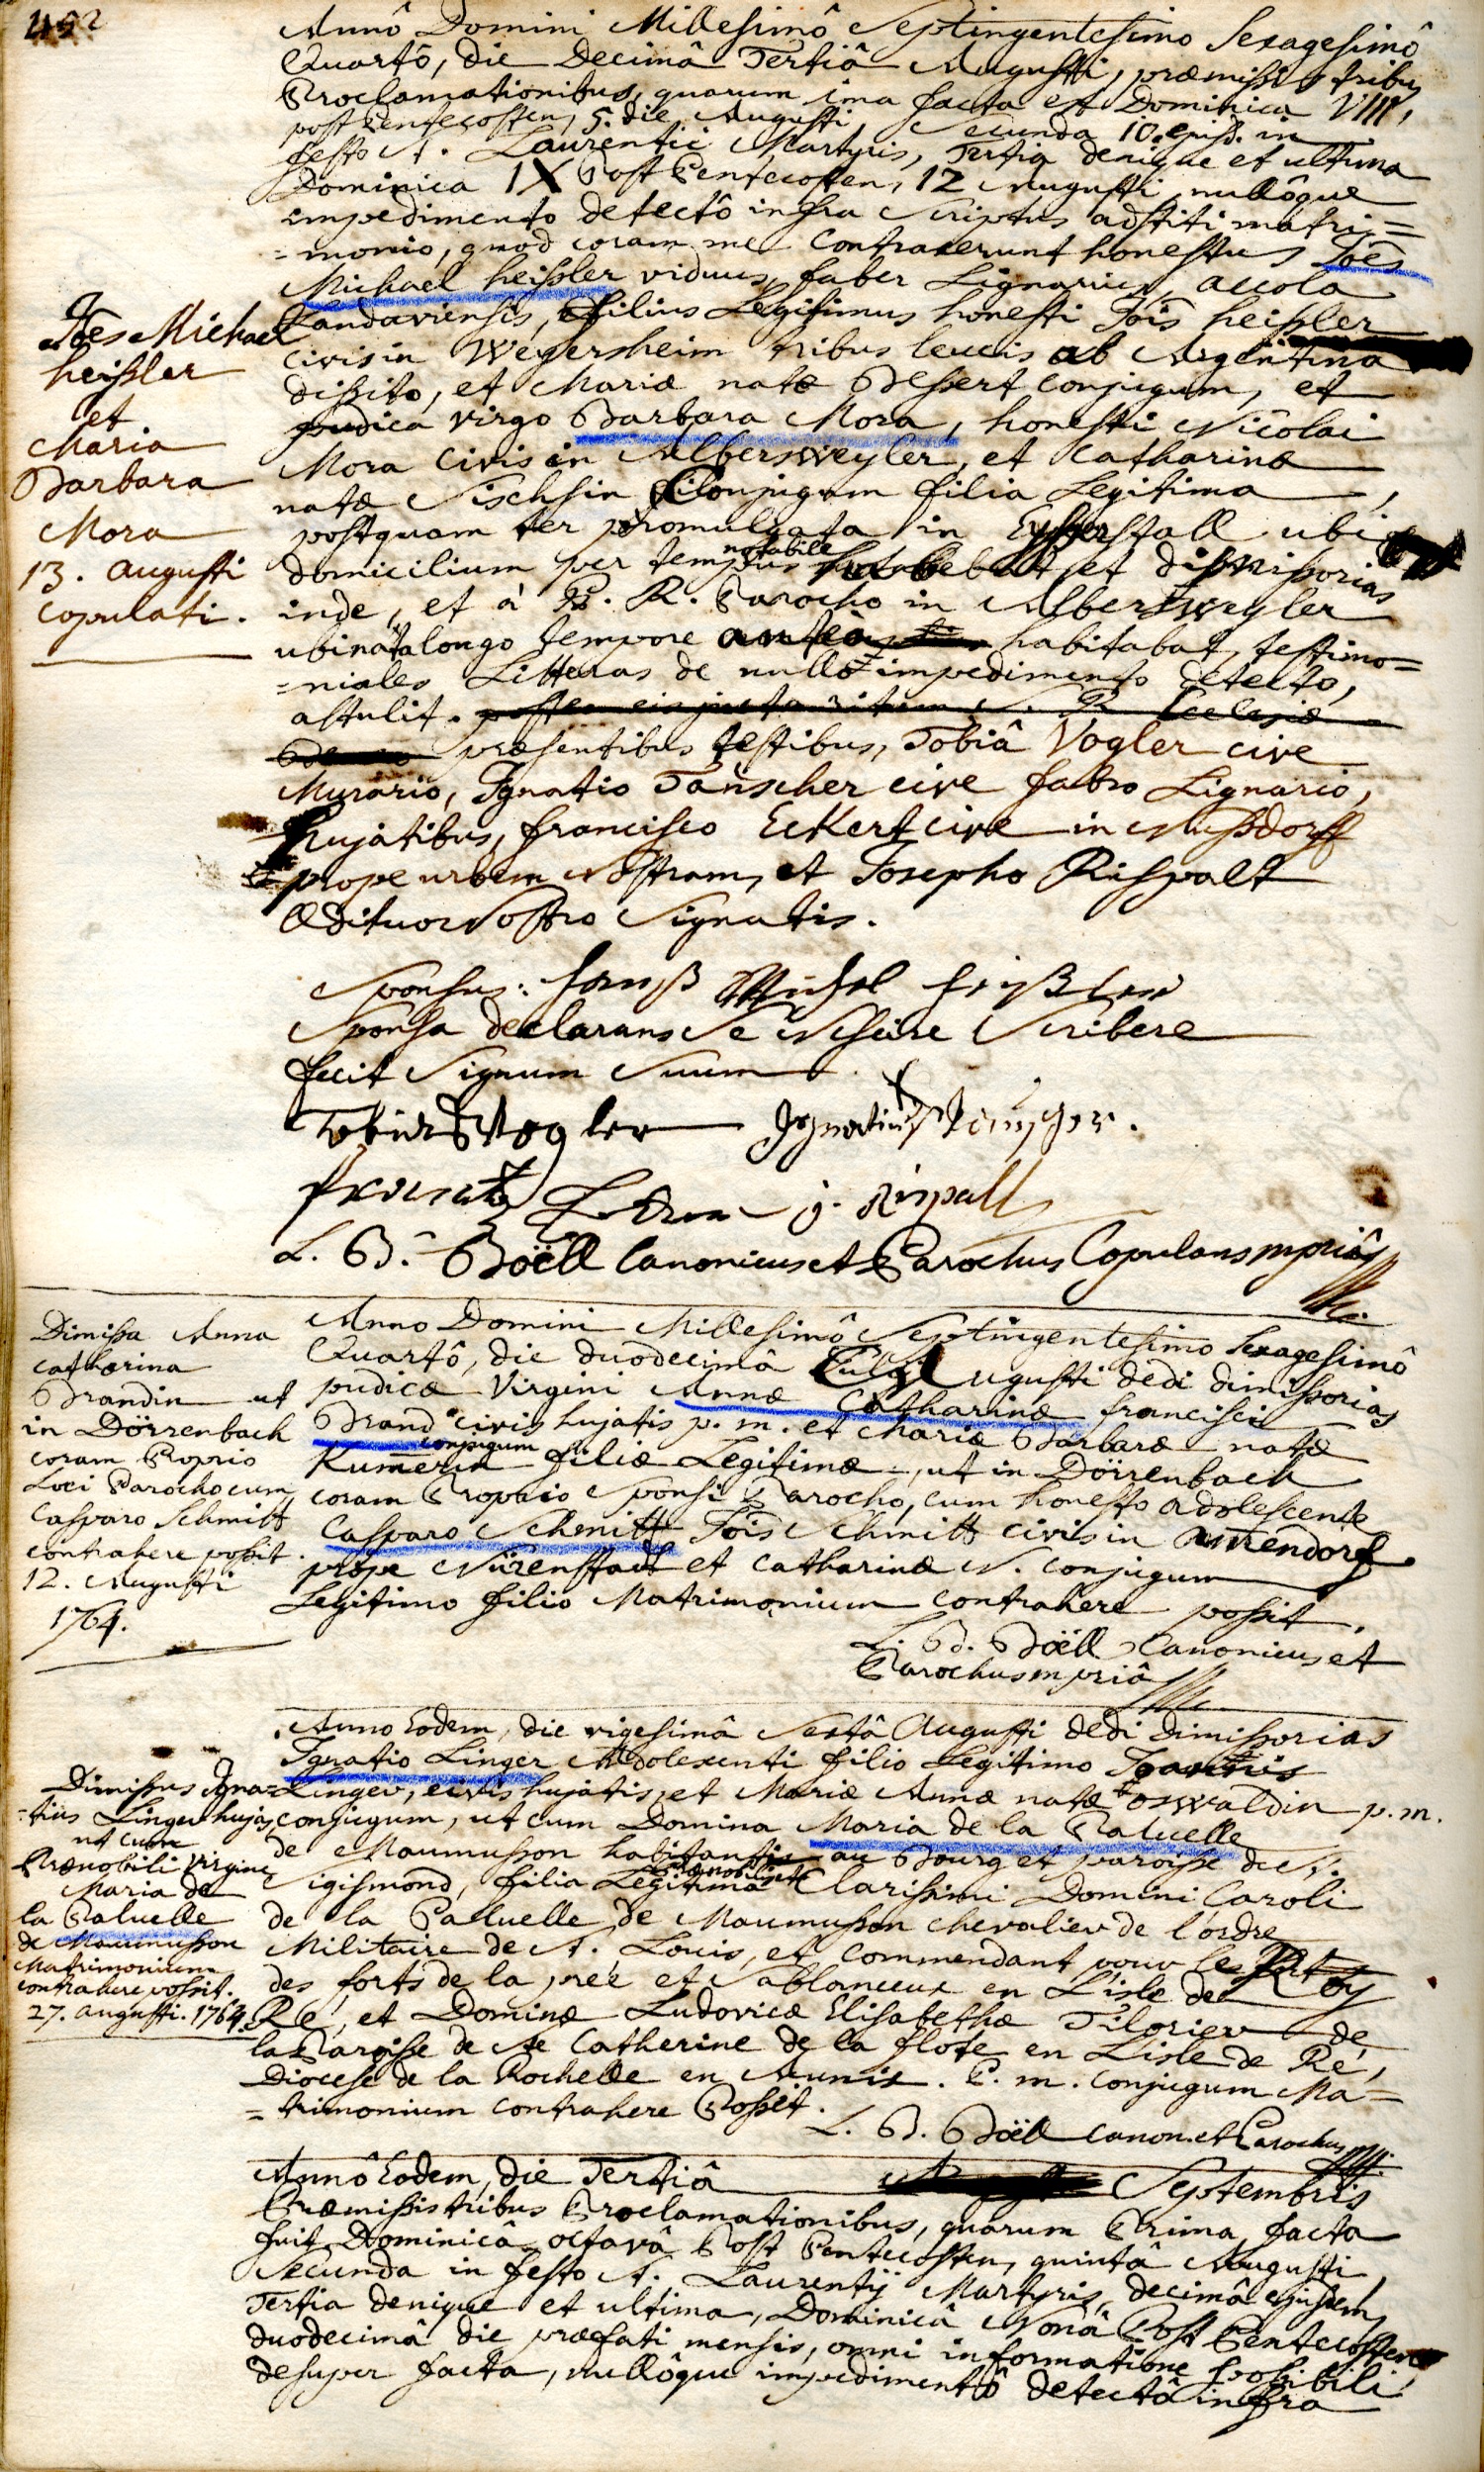 452
Annô Domini Millesimô Septingentesimo Sexagesimô
Quartô, die Decimâ Tertiâ Augusti, præmissis tribus
Proclamationibus, quarum ima facta est Dominica VIII,
post Pentecosten, 5. die Augusti, Secunda 10. ejusd. in
festo S. Laurentii Martyris, Tertia denique et ultima
Dominica IX Post Pentecosten, 12 Augusti, nullôque
impedimento detectô infra Scriptus adstiti matri=
=monio, quod coram me Contraxerunt honestus Joês
Michael heissler viduus, faber Lignarius, accola
Landaviensis, filius Legitimus honesti Jois heissler
civis in Weyersheim tribus leucis ab Argentina
dissito, et Mariæ natæ Dessert conjugum, et
pudica virgo Barbara Mora, honesti Nicolai
Mora Civis in Alberswyler, et Catharinæ
natæ Fischsin Conjugum filia Legitima,
postquam ter promulgata in Eysserstall ubi
domicilium per tempus notabile habebat, et dimissorias
inde, et à P. R. Parocho in Alberswyler
ubi nata longo tempore anteà habitabat, testimo=
=niales Litteras de nullô impedimento detecto,
attulit.
præsentibus testibus, Tobiâ Vogler cive
Murario, Ignatio Tänscher cive fabro Lignario,
hujatibus, francisco Eckert cive in Nussdorff
prope urbem Nostram, et Josepho Rispalt
Ædituo Nostro Signatis.
Joês Michael
heissler
et
Maria
Barbara
Mora
13. augusti
copulati.
Sponsus: Hanß Michel Heißler
Sponsa declarans Se Nescire Scribere
fecit Signum Suum
Tobias Vogler Ignatius
frantz j. Rispall
L. B. Boëll Canonicus et Parochus Copulans mpriâ
Dimissa Anna
catharina
Brandin ut
in Dörrenbach
coram Proprio
Loci Parocho cum
Casparo Schmitt
contrahere possit.
12. Augusti
1764.
Anno Domini Millesimô Septingentesimo Sexagesimô
Quartô, die duodecimâ Augusti dedi dimissorias
pudicæ Virgini Annæ Catharinæ francisci
Brand civis hujatis p. m. et Mariæ Barbaræ natæ
Kumerin conjugum filiæ Legitimæ, ut in Dörrenbach
coram Proprio Sponsi Parocho, cum honesto adolescente
Casparo Schmitt Jois Schmitt civis in Aurendorf
prope Nürenstadt et Catharinæ N. conjugum
Legitimo filio Matrimonium contrahere possit.
L. B. Boëll Canonicus et
Parochus mpriâ
Anno Eodem, die vigesimâ Sextâ Augusti dedi dimissorias
Ignatio Linger Adolescenti filio Legitimo Joannis
Linger, civis hujatis, et Mariæ Annæ natæ Oswaldin p. m.
conjugum, ut cum Domina Maria de la Paluelle
de Maumusson habitantis au Bourg et paroisse de S.
Sigismond, filia Legitima Prænobilis et Clarissimi Domini Caroli
de la Paluelle de Maumusson chevalier de l'ordre
Militaire de S. Louis, et commendant pour le Roy
des forts de la prée et Sablanceux en L'isle de
Ré, et Dominæ Ludovicæ Elisabethæ Tilorier de
la Paroisse de Ste Catherine de la flote en Lisle de Ré,
Diocese de la Rochelle en Aunis. P. m. conjugum Ma=
=trimonium contrahere Possit.
L. B. Boëll canon. et Parochus
Dimissus Igna=
=tius Linger hujas
ut cum
Prænobili Virgine
Maria de
la Paluelle
de Maumusson
Matrimonium
contrahere possit.
27. augusti. 1764.
Annô Eodem, die Tertiâ Septembris
Præmissis tribus Proclamationibus, quarum Prima facta
fuit Dominicâ octavâ Post Pentecosten, quintâ Augusti,
Secunda in festo S. Laurentij Martyris, decimâ ejusdem,
Tertia denique et ultima, Dominicâ Nonâ Post Pentecosten
duodecimâ die præfati mensis, omni informatione possibili
desuper facta, nullôque impedimentô detectô infra